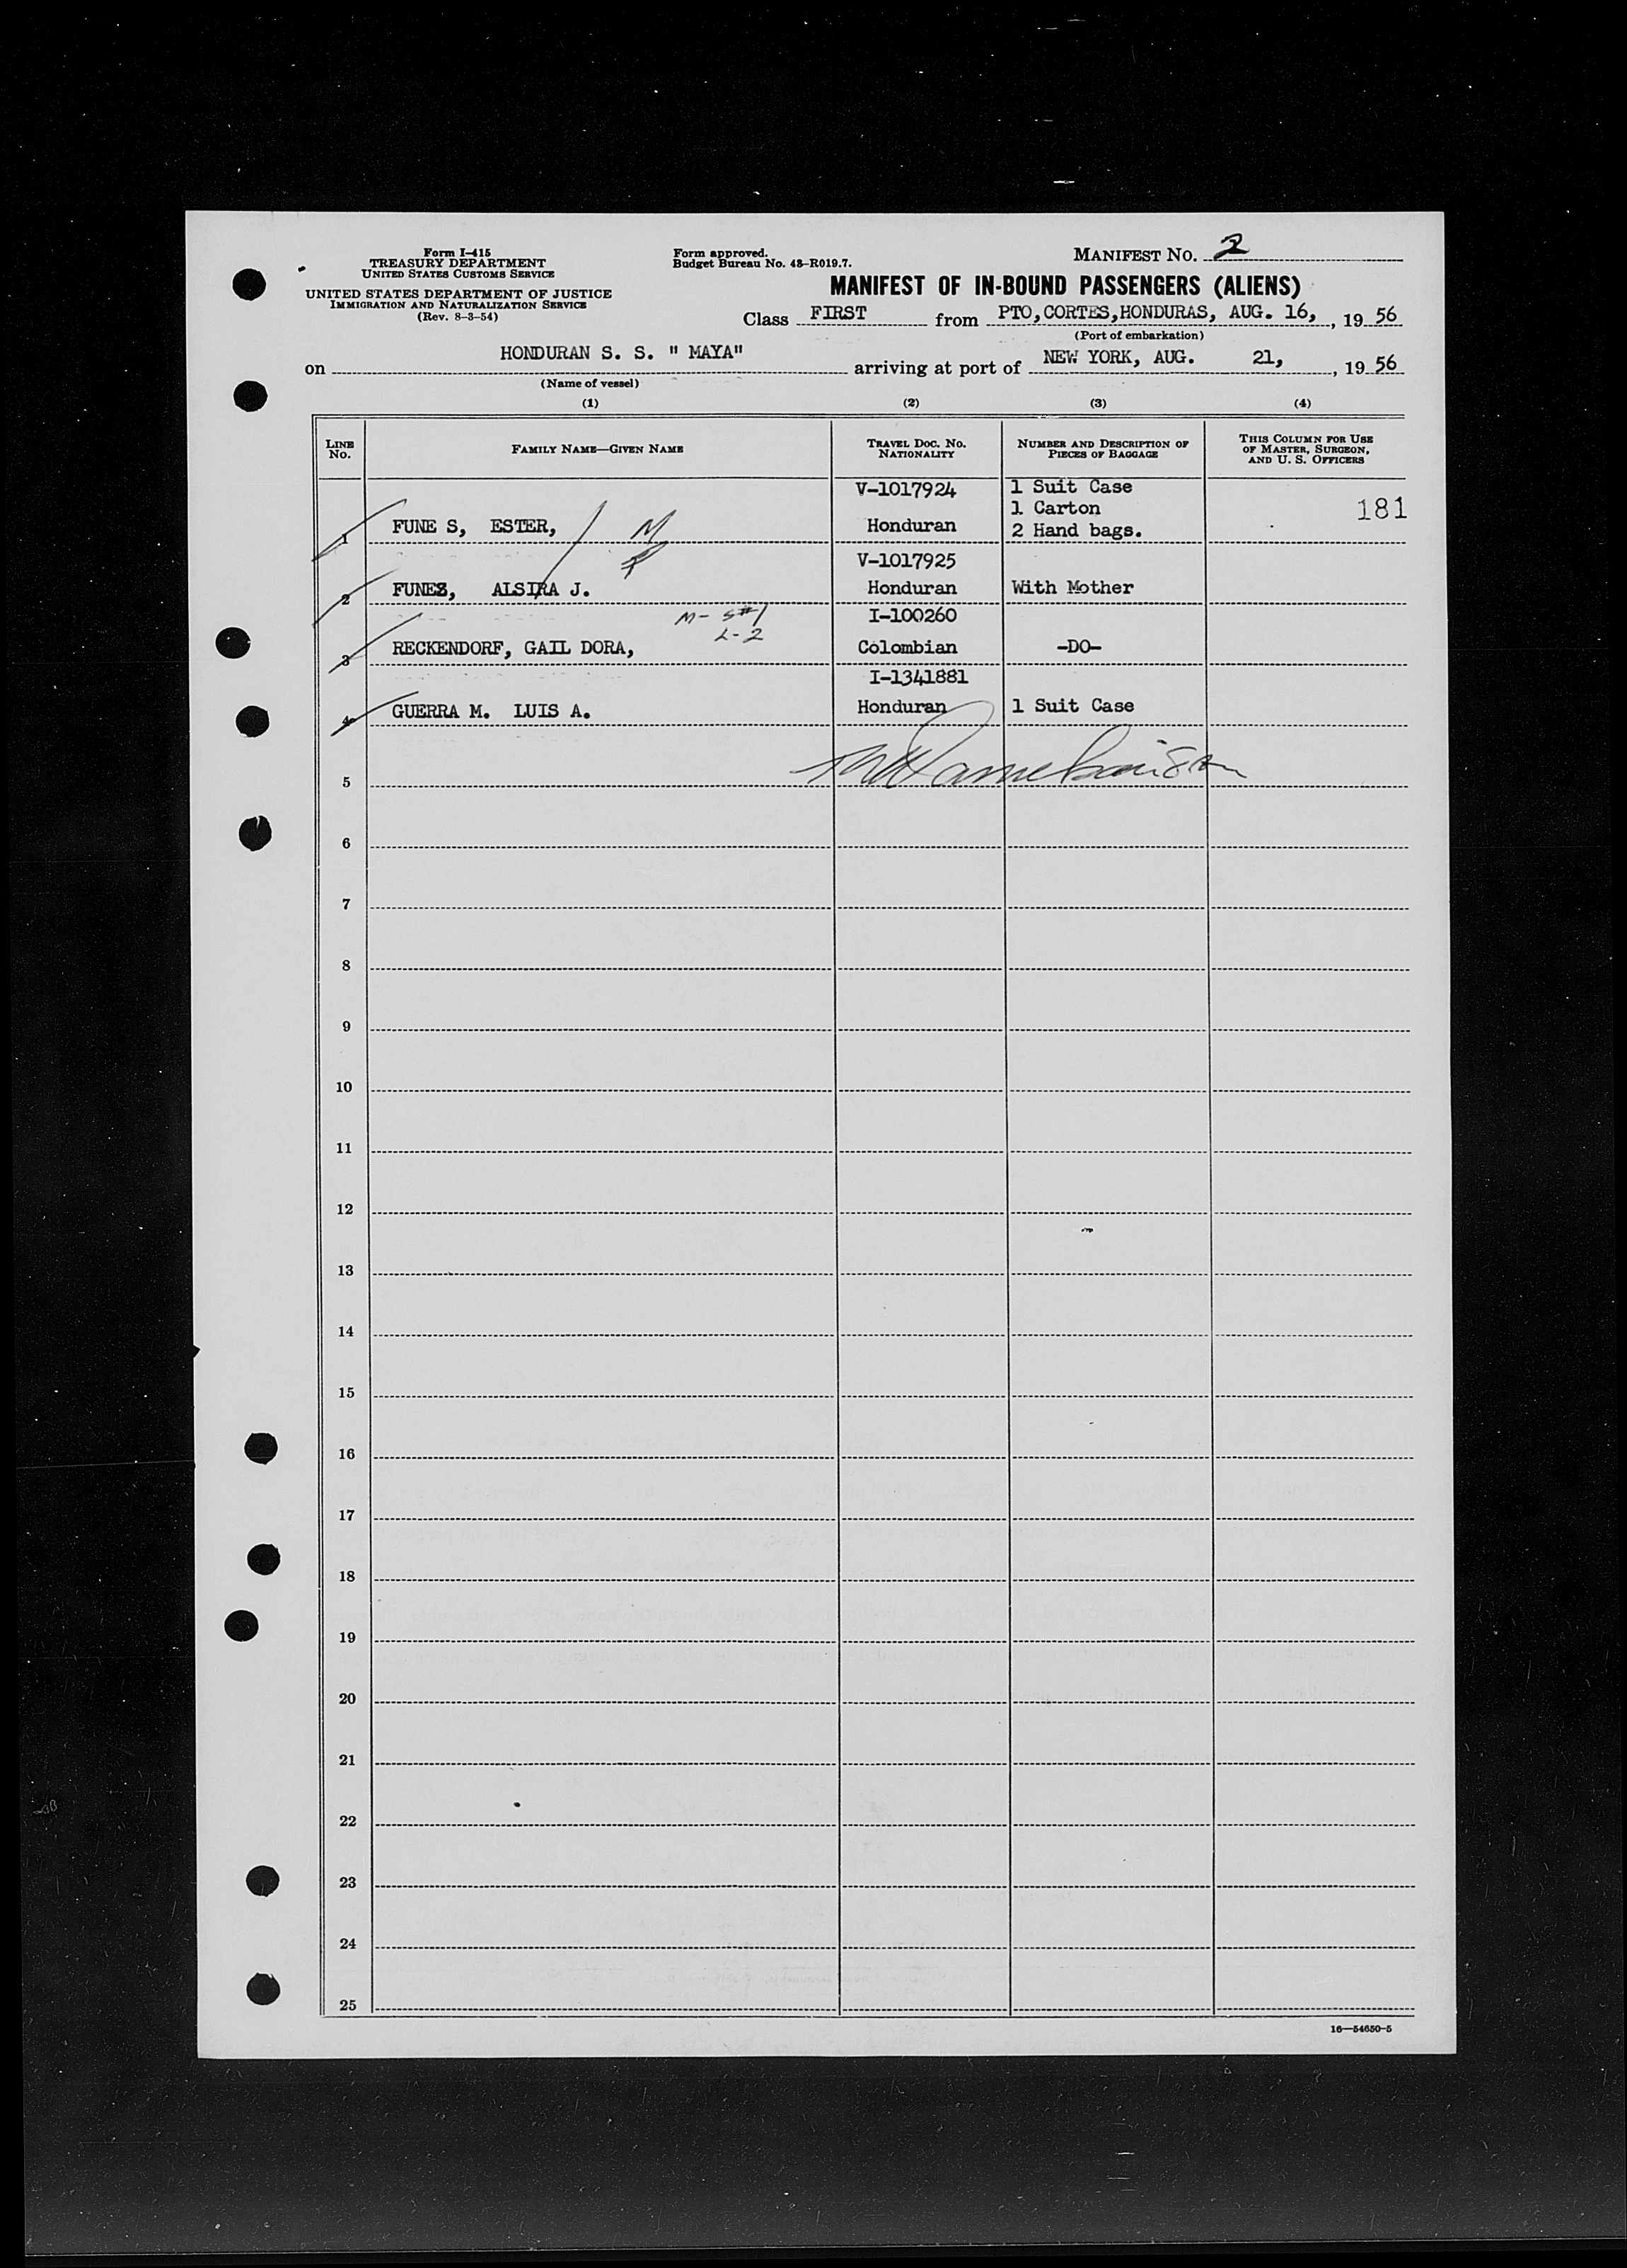 Form I-415
TREASURY DEPARTMENT
UNITED STATES CUSTOMS SERVICE
UNITED STATES DEPARTMENT OF JUSTICE
IMMIGRATION AND NATURALIZATION SERVICE
(Rev. 8-3-54)
Form approved.
Budget Bureau No. 43-R019.7.
MANIFEST No. 2
MANIFEST OF IN-BOUND PASSENGERS (ALIENS)
Class FIRST from PTO,CORTES,HONDURAS, AUG. 16, , 19 56
(Port of embarkation)
on HONDURAN S. S. " MAYA" arriving at port of NEW YORK, AUG. 21, , 19 56
(Name of vessel)
(1) (2) (3) (4)
LINE No. FAMILY NAME—GIVEN NAME TRAVEL DOC. NO. NATIONALITY NUMBER AND DESCRIPTION OF PIECES OF BAGGAGE THIS COLUMN FOR USE OF MASTER, SURGEON, AND U. S. OFFICERS
V-1017924 1 Suit Case
1 Carton 181
1 FUNE S, ESTER, M Honduran 2 Hand bags.
V-1017925
2 FUNES, ALSIRA J. Honduran With Mother
M- S#1 I-100260
L-2
3 RECKENDORF, GAIL DORA, Colombian -DO-
I-1341881
4 GUERRA M. LUIS A. Honduran 1 Suit Case
5
6
7
8
9
10
11
12
13
14
15
16
17
18
19
20
21
22
23
24
25
16—54650-5